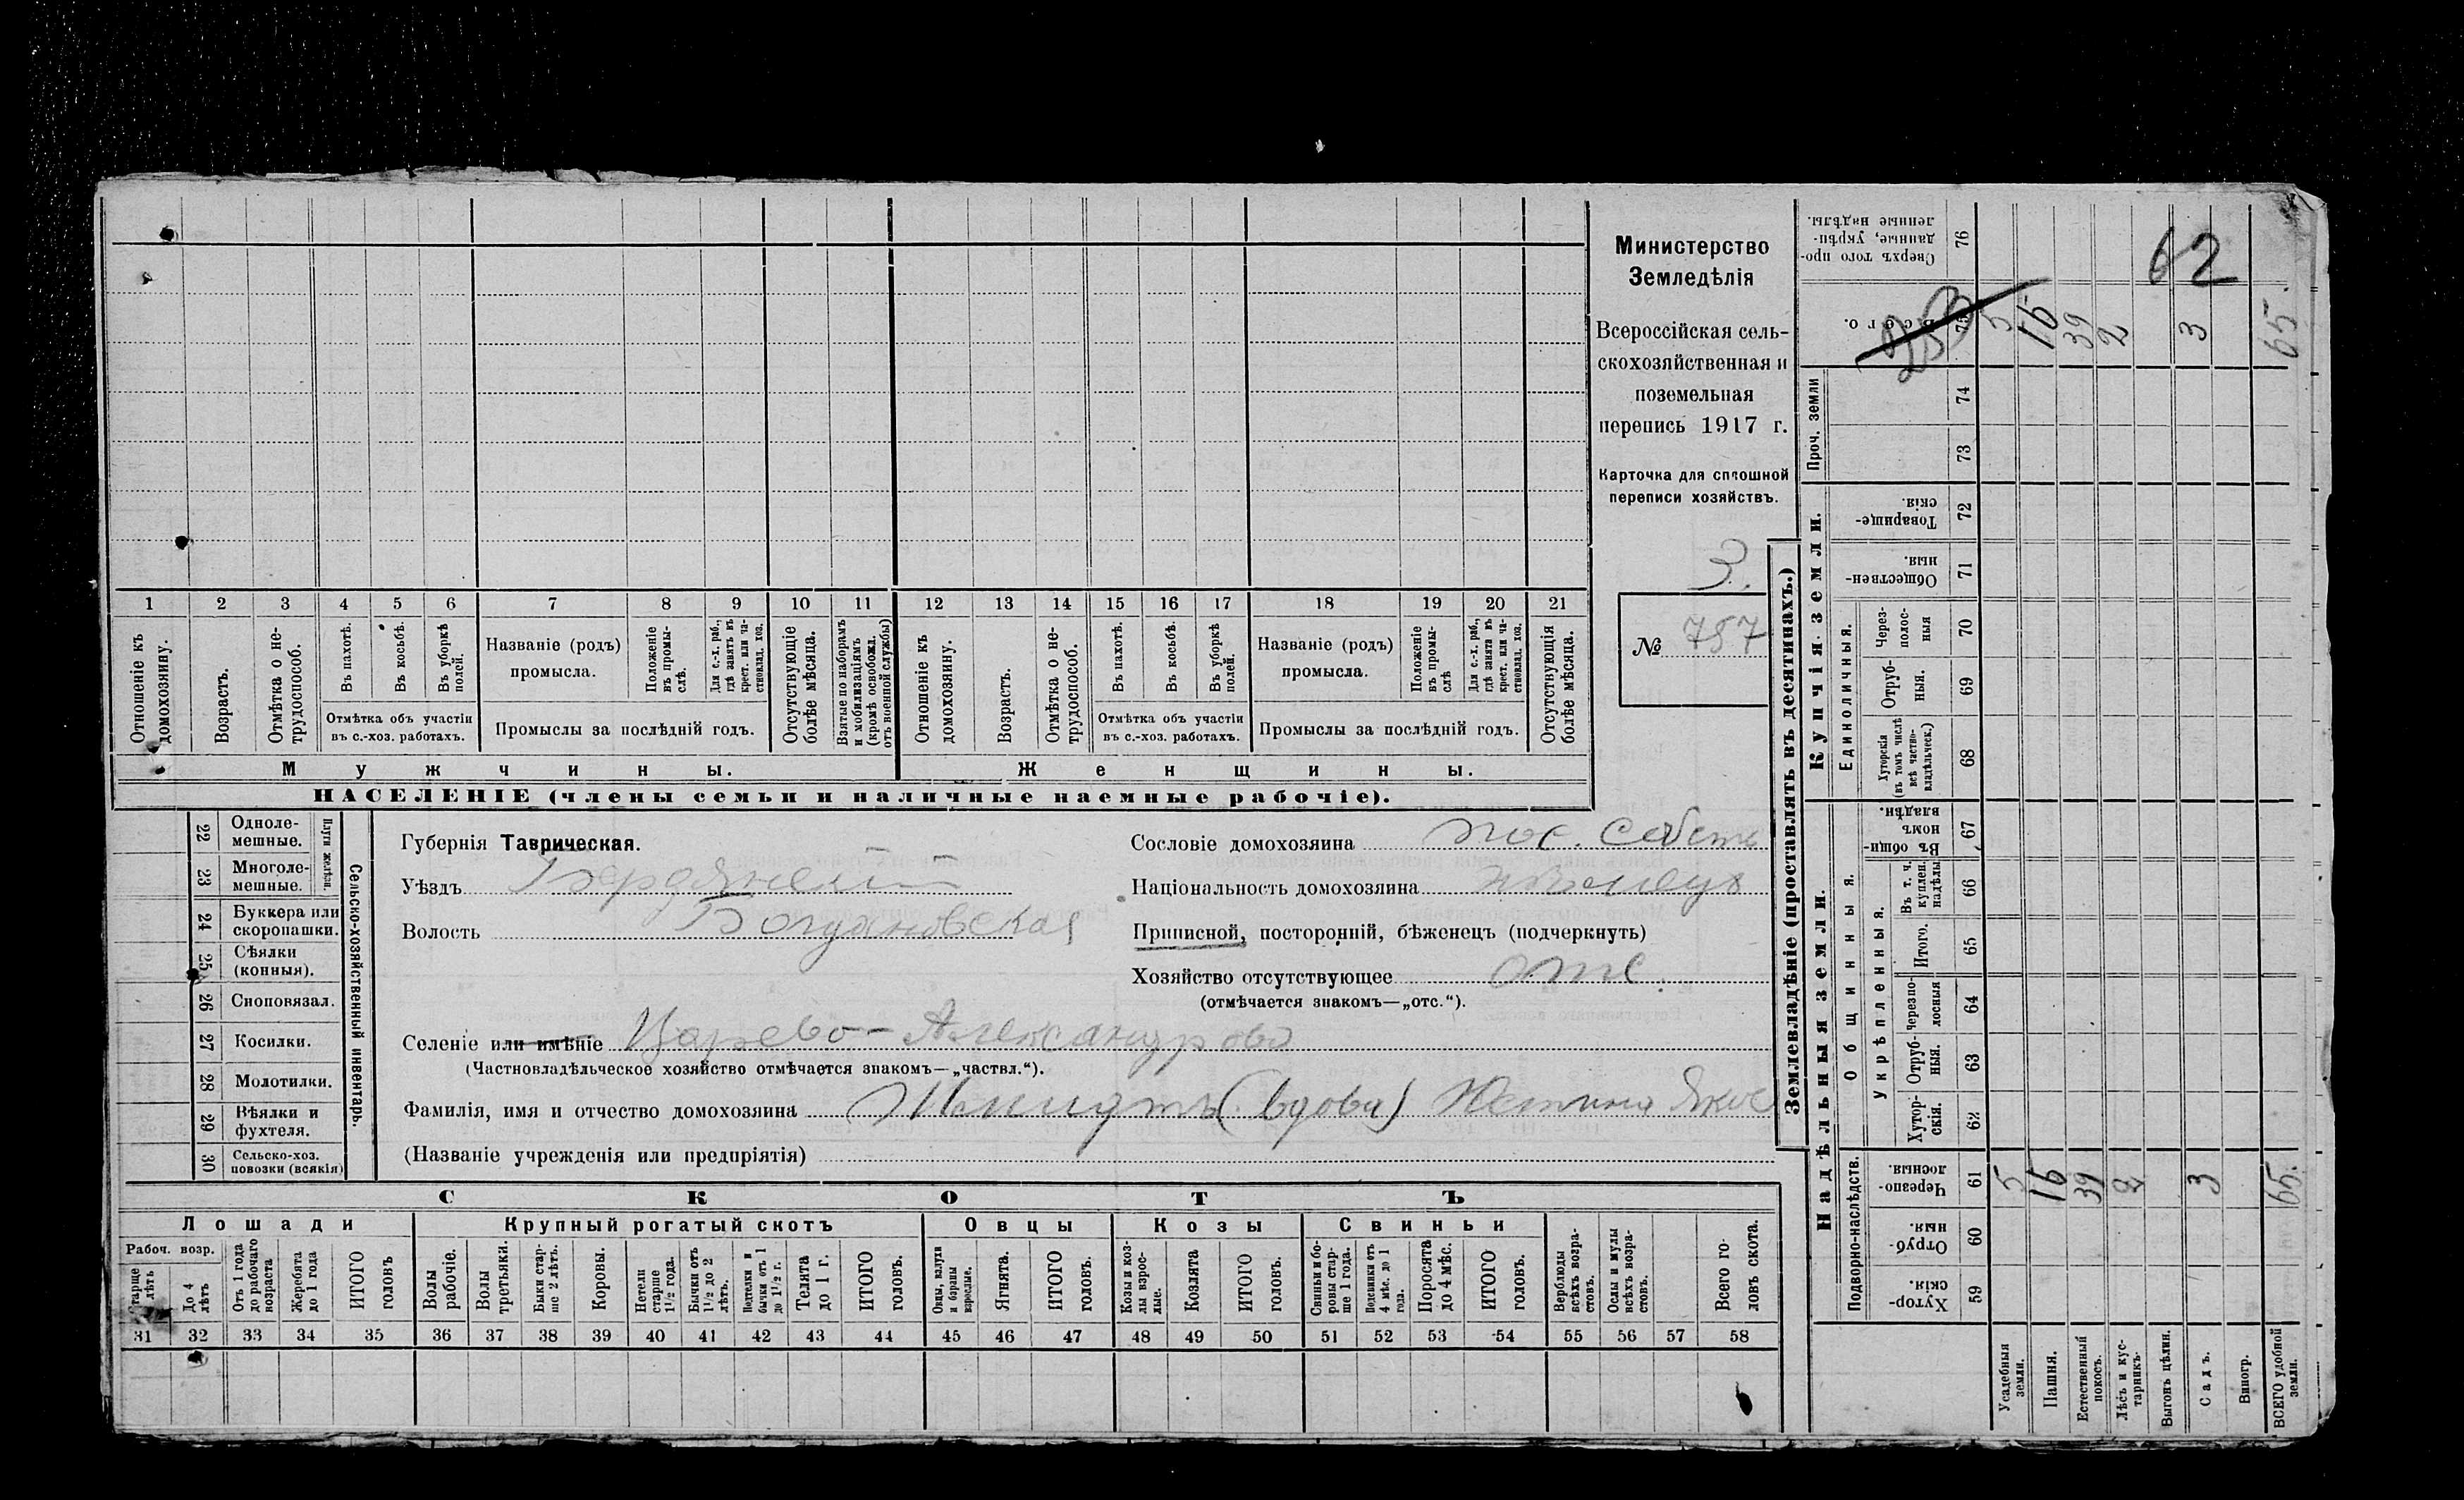 1 2 3 4 5 6 7 8 9 10 11 12 13 14 15 16 17 18 19 20 21
Отношеніе къ домохозяину.
Возрастъ.
Отмѣтка о не-
трудоспособ.
Въ пахотѣ.
Въ косьбѣ.
Въ уборкѣ
полей.
Отмѣтка объ участіи
въ с.-хоз. работахъ.
Названіе (родъ)
промысла.
Положеніе
въ промы-
слѣ.
Для с.-х. раб.,
гдѣ занятъ въ
крест. или ча-
стновлад. хоз.
Промыслы за послѣдній годъ.
Отсутствующіе
болѣе мѣсяца.
Взятые по наборамъ
и мобилизаціямъ
(кромѣ освобожд.
отъ военной службы)
Отношеніе къ
домохозяину.
Возрастъ.
Отмѣтка о не-
трудоспособ.
Въ пахотѣ.
Въ косьбѣ.
Въ уборкѣ
полей.
Отмѣтка объ участіи
въ с.-хоз. работахъ.
Названіе (родъ)
промысла.
Положеніе
въ промы-
слѣ
Для с.-х. раб.,
гдѣ занята въ
крест. или ча-
стновлад. хоз.
Промыслы за послѣдній годъ.
Отсутствующія
болѣе мѣсяца.
Мужчины.
Женщины.
НАСЕЛЕНІЕ (члены семьи и наличные наемные рабочіе).
Министерство
Земледѣлія
Всероссійская сель-
скохозяйственная и
поземельная
перепись 1917 г.
Карточка для сплошной
переписи хозяйствъ.
3.
№ 757
22 Одноле-
мешные.
23 Многоле-
мешные.
Плуги желѣзн.
24 Буккера или
скоропашки.
25 Сѣялки
(конныя).
26 Сноповязал.
27 Косилки.
28 Молотилки.
29 Вѣялки и
фухтеля.
30 Сельско-хоз.
повозки (всякія)
Сельско-хозяйственный инвентарь.
Губернія Таврическая.
Уѣздъ Бердянскій
Волость Богдановская
Сословіе домохозяина пос. собств
Національность домохозяина нѣмецъ
Приписной, посторонній, бѣженецъ (подчеркнуть)
Хозяйство отсутствующее отс.
(отмѣчается знакомъ—„отс.“).
Селеніе или имѣніе Царево-Александрово
(Частновладѣльческое хозяйство отмѣчается знакомъ—„частвл.“).
Фамилія, имя и отчество домохозяина Шмидтъ (вдова) Юстина Яков
(Названіе учрежденія или предпріятія)
СКОТЪ
Лошади
Крупный рогатый скотъ
Овцы
Козы
Свиньи
Рабоч. возр.
Старше
лѣтъ
До 4
лѣтъ
Отъ 1 года
до рабочаго
возраста
Жеребята
до 1 года
ИТОГО
головъ
Волы
рабочіе.
Волы
третьяки.
Быки стар-
ше 2 лѣтъ.
Коровы.
Нетели
старше
1½ года.
Бычки отъ
1½ до 2
лѣтъ.
Подтелки и
бычки отъ 1
до 1½ г.
Телята
до 1 г.
ИТОГО
головъ.
Овцы, валухи
и бараны
взрослые.
Ягнята.
ИТОГО
головъ.
Козы и коз-
лы взрос-
лые.
Козлята
ИТОГО
головъ.
Свиньи и бо-
ровы стар-
ше 1 года.
Подсвинки отъ
4 мѣс. до 1
года.
Поросята
до 4 мѣс.
ИТОГО
головъ.
Верблюды
всѣхъ возра-
стовъ.
Ослы и мулы
всѣхъ возра-
стовъ.
Всего го-
ловъ скота.
31 32 33 34 35 36 37 38 39 40 41 42 43 44 45 46 47 48 49 50 51 52 53 54 55 56 57 58
Землевладѣніе (проставлять въ десятинахъ.)
62
Сверхъ того про-
данные, укрѣп-
ленные надѣлы.
76
Всего.
75
5 16 39 2 3 65.
Проч. земли
74
73
Купчія земли.
Товарище-
скія.
72
Обществен-
ныя.
71
Единоличныя.
Через-
полос-
ныя
70
Отруб-
ныя.
69
Хуторскія
(въ томъ числѣ
всѣ частно-
владѣльческ.)
68
Надѣльныя земли.
Общинныя.
Въ общи-
номъ
владѣн.
67
Укрѣпленныя.
Въ т. ч.
куплен.
надѣлы
66
Итого.
65
Черезпо-
лосныя
64
Отруб-
ныя.
63
Хутор-
скія.
62
Подворно-наслѣдств.
Черезпо-
лосныя.
61
5 16 39 2 3 65.
Отруб-
ныя.
60
Хутор-
скія.
59
Усадебныя
земли.
Пашня.
Естественный
покосъ.
Лѣсъ и кус-
тарникъ.
Выгонъ цѣлин.
Садъ.
Виногр.
ВСЕГО удобной
земли.